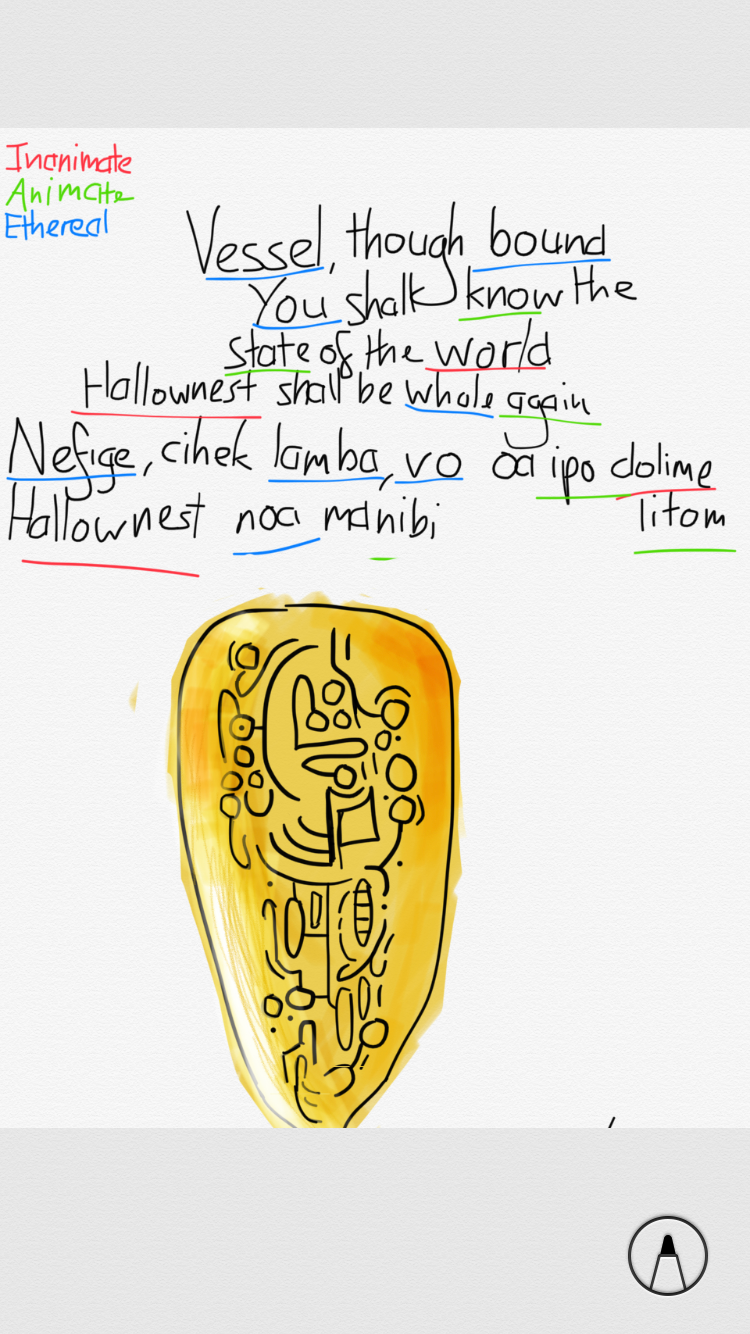 Inanimate
Animate
Ethereal
Vessel, though bound
You shall know the
state of the world
Hallownest shall be whole again
Nefige, cihek lamba, vo oa ipo dolime
Hallownest noa manibi litom